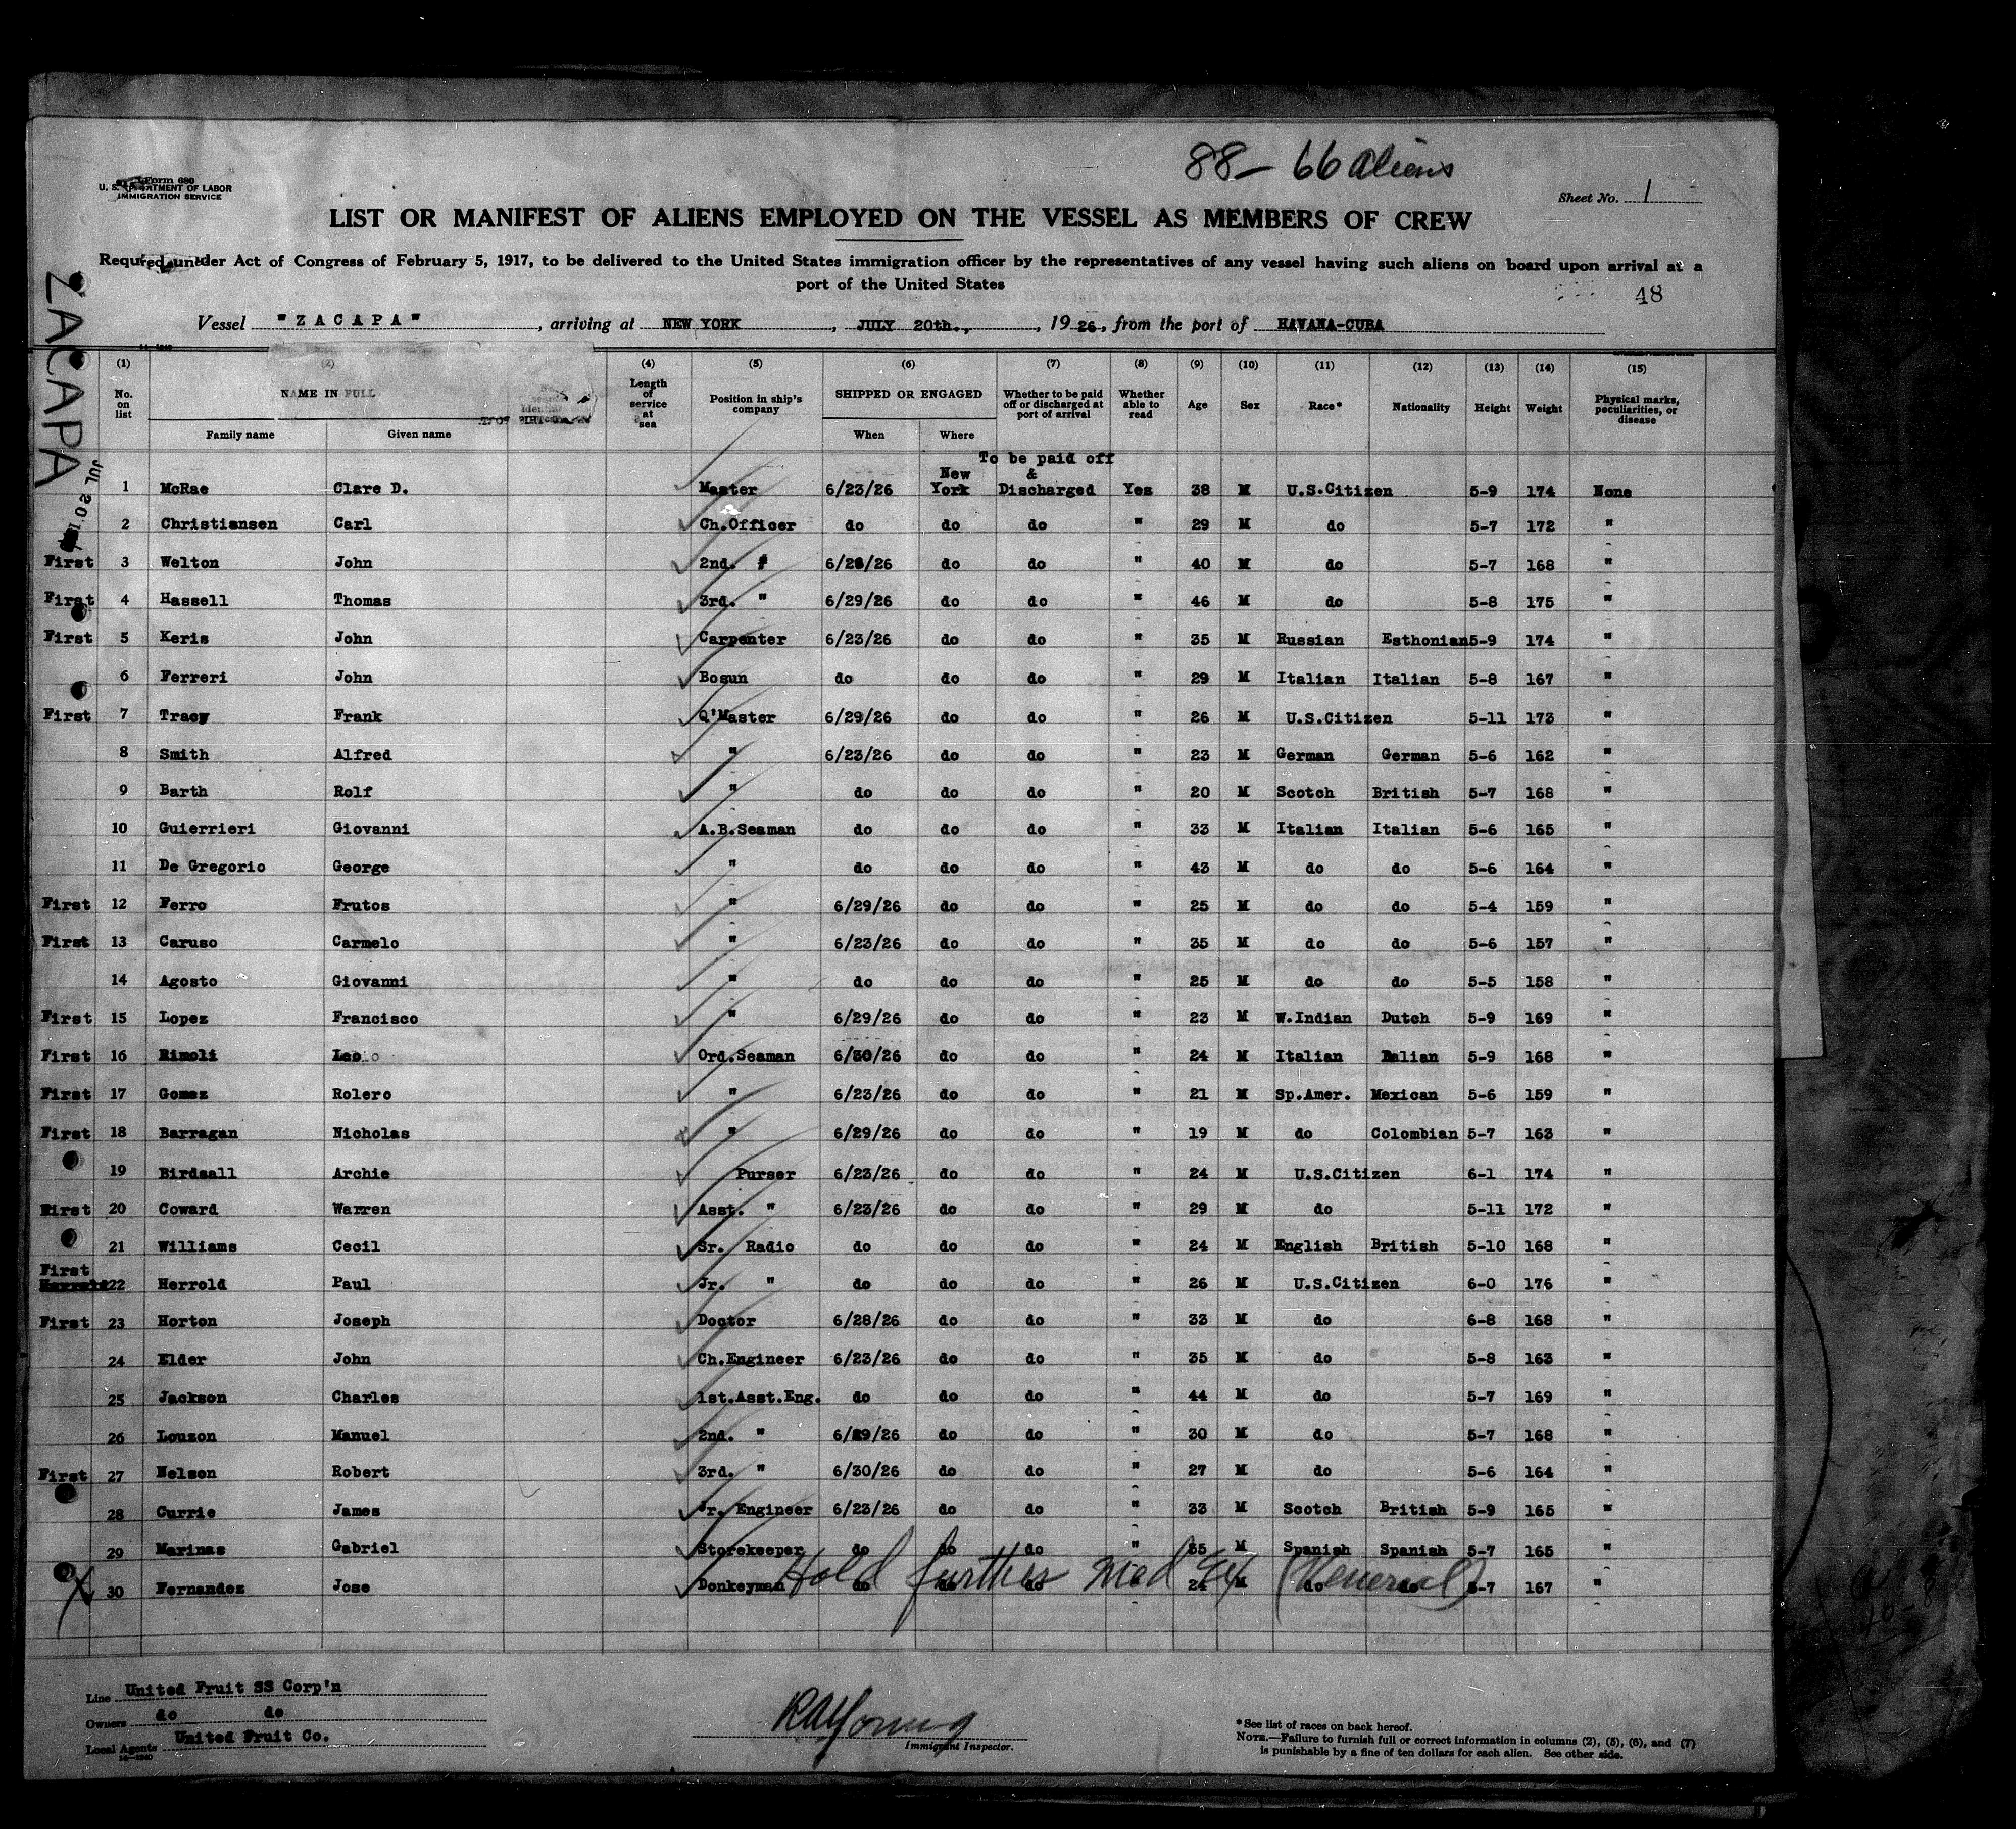 88- 66 aliens
Form 680
U. S. DEPARTMENT OF LABOR
IMMIGRATION SERVICE
Sheet No. 1
LIST OR MANIFEST OF ALIENS EMPLOYED ON THE VESSEL AS MEMBERS OF CREW
Required under Act of Congress of February 5, 1917, to be delivered to the United States immigration officer by the representatives of any vessel having such aliens on board upon arrival at a
port of the United States
48
Vessel "ZACAPA", arriving at NEW YORK, JULY 20th., 1926, from the port of HAVANA-CUBA
ZACAPA
(1) (2) (4) (5) (6) (7) (8) (9) (10) (11) (12) (13) (14) (15)
No. on list NAME IN FULL Length of service at sea Position in ship's company SHIPPED OR ENGAGED Whether to be paid off or discharged at port of arrival Whether able to read Age Sex Race* Nationality Height Weight Physical marks, peculiarities, or disease
Family name Given name When Where
To be paid off
New &
1 McRae Clare D. Master 6/23/26 York Discharged Yes 38 M U.S.Citizen 5-9 174 None
2 Christiansen Carl Ch.Officer do do do " 29 M do 5-7 172 "
First 3 Welton John 2nd. " 6/28/26 do do " 40 M do 5-7 168 "
First 4 Hassell Thomas 3rd. " 6/29/26 do do " 46 M do 5-8 175 "
First 5 Keris John Carpenter 6/23/26 do do " 35 M Russian Esthonian 5-9 174 "
6 Ferreri John Bosun do do do " 29 M Italian Italian 5-8 167 "
First 7 Tracy Frank Q'Master 6/29/26 do do " 26 M U.S.Citizen 5-11 173 "
8 Smith Alfred " 6/23/26 do do " 23 M German German 5-6 162 "
9 Barth Rolf " do do do " 20 M Scotch British 5-7 168 "
10 Guierrieri Giovanni A.B.Seaman do do do " 33 M Italian Italian 5-6 165 "
11 De Gregorio George " do do do " 43 M do do 5-6 164 "
First 12 Ferro Frutos " 6/29/26 do do " 25 M do do 5-4 159 "
First 13 Caruso Carmelo " 6/23/26 do do " 35 M do do 5-6 157 "
14 Agosto Giovanni " do do do " 25 M do do 5-5 158 "
First 15 Lopez Francisco " 6/29/26 do do " 23 M W.Indian Dutch 5-9 169 "
First 16 Rimoli Ord.Seaman 6/30/26 do do " 24 M Italian Italian 5-9 168 "
First 17 Gomez Rolero " 6/23/26 do do " 21 M Sp.Amer. Mexican 5-6 159 "
First 18 Barragan Nicholas " 6/29/26 do do " 19 M do Colombian 5-7 163 "
19 Birdsall Archie Purser 6/23/26 do do " 24 M U.S.Citizen 6-1 174 "
First 20 Coward Warren Asst. " 6/23/26 do do " 29 M do 5-11 172 "
21 Williams Cecil Sr. Radio do do do " 24 M English British 5-10 168 "
First
22 Herrold Paul Jr. " do do do " 26 M U.S.Citizen 6-0 176 "
First 23 Horton Joseph Doctor 6/28/26 do do " 33 M do 6-8 168 "
24 Elder John Ch.Engineer 6/23/26 do do " 35 M do 5-8 163 "
25 Jackson Charles 1st.Asst.Eng. do do do " 44 M do 5-7 169 "
26 Louzon Manuel 2nd. " 6/29/26 do do " 30 M do 5-7 168 "
First 27 Nelson Robert 3rd. " 6/30/26 do do " 27 M do 5-6 164 "
28 Currie James Jr. Engineer 6/23/26 do do " 33 M Scotch British 5-9 165 "
29 Marinas Gabriel Storekeeper do do do " 35 M Spanish Spanish 5-7 165 "
30 Fernandez Jose Donkeyman do do do 24 M do do 5-7 167 "
Hold further Med Ex (Venereal)
Line United Fruit SS Corp'n
Owners do do
Local Agents United Fruit Co.
RA Young
Immigrant Inspector.
*See list of races on back hereof.
NOTE.—Failure to furnish full or correct information in columns (2), (5), (6), and (7)
is punishable by a fine of ten dollars for each alien. See other side.